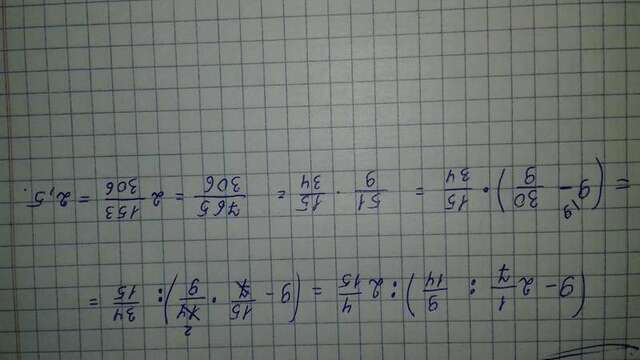 (9 - 2 1/7 : 9/14) : 2 4/15 = (9 - 15/7 · 14/9) : 34/15 =
= (9 - 30/9) · 15/34 = 51/9 · 15/34 = 765/306 = 2 153/306 = 2,5.